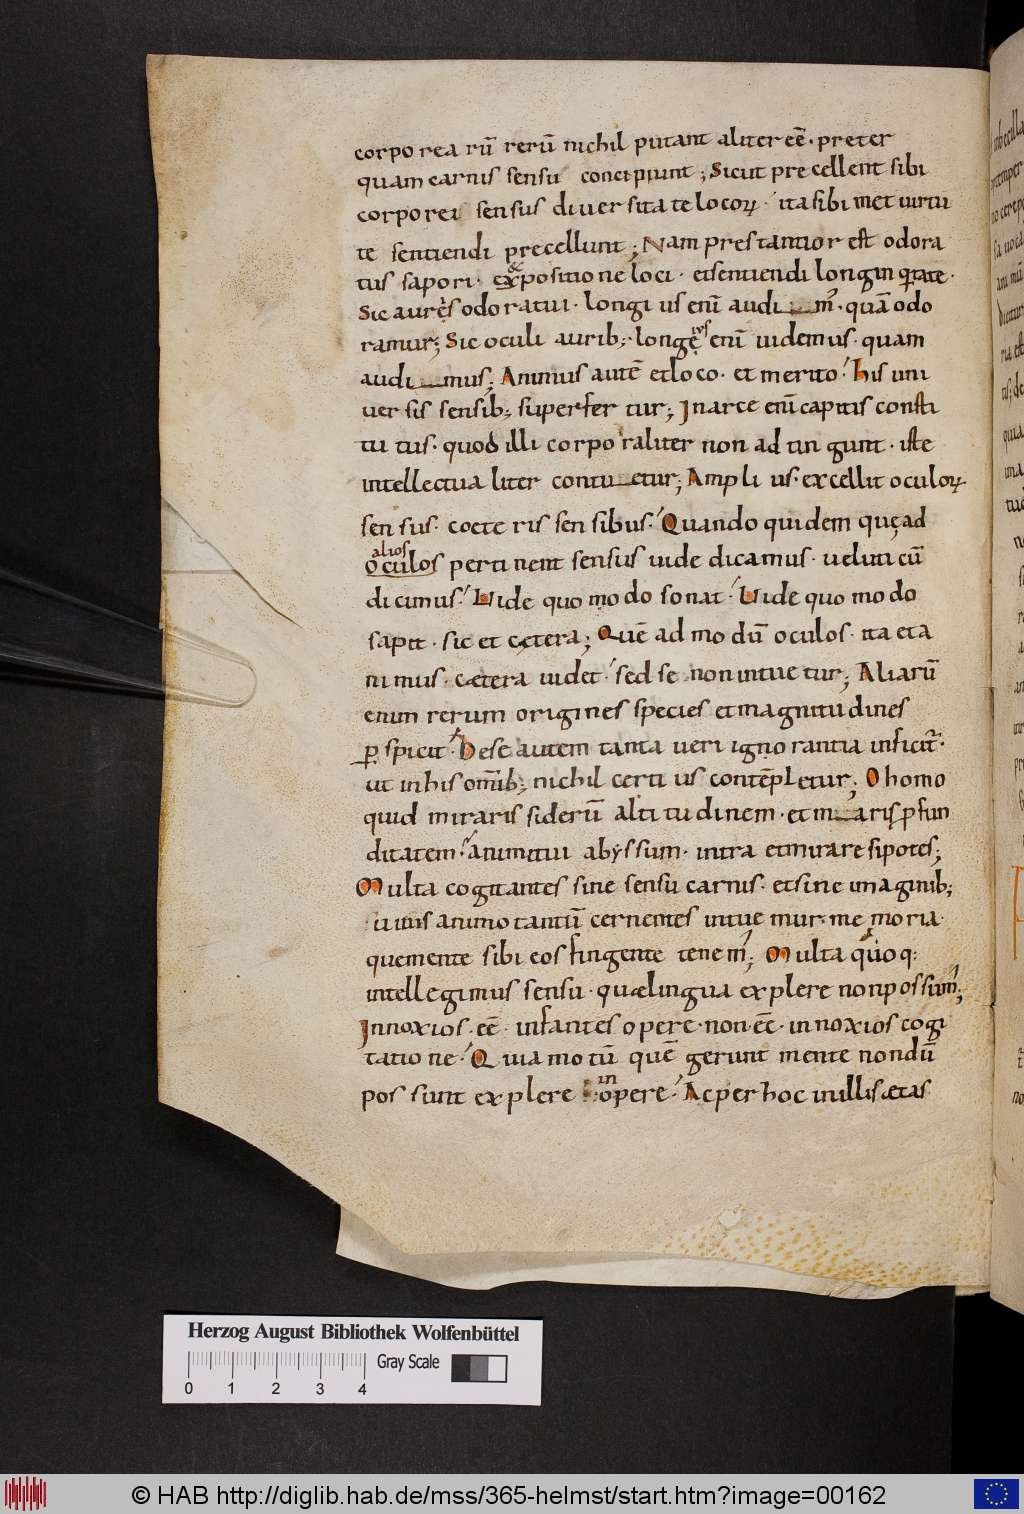 corporearū rerū nichil putant aliter eē · preter
quam carnis sensu concipiunt ; Sicut precellent sibi
corporei sensus diuersitate locoꝝ · ita sibimet uirtu
te sentiendi precellunt ; Nam prestantior est odora
tus sapori · & expositione loci · et sentiendi longinquitate ·
Sic aures odoratui · longius enī audim᾽ · quā odo
ramur ; Sic oculi aurib; · longęius enī uidemus · quam
audimus ; Animus autē et loco · et merito · his uni
uersis sensib; superfertur ; In arce enī capitis consti
tutus · quod illi corporaliter non adtingunt · iste
intellectualiter contuetur ; Amplius · excellit oculoꝝ
sensus · coeteris sensibus · Quandoquidem quę ad
alios
oculos pertinent sensus uide dicamus · ueluti cū
dicimus · Uide quomodo sonat · Uide quomodo
sapit · sic et cętera ; Quēadmodū oculos · ita et a
nimus · cætera uidet · sed se non intuetur ; Aliarū
enim rerum origines species et magnitudines
ꝑspicit · De se autem tanta ueri ignorantia inficit᷑ ·
ut in his omīb; nichil certius contēpletur ; O homo
quid miraris siderū altitudinem · et miraris ꝓfun
ditatem · animi tui abyssum · intra et mirare si potes ;
Multa cogitantes sine sensu carnis · et sine imaginib;
uiuis animo tantū cernentes intuemur · memoria
quemente sibi eos fingente tenem᾽ ; Multa quoq:
intellegimus sensu · quæ lingua explere non possum᾽ ;
Innoxios · eē · infantes opere · non eē · innoxios cogi
tatione · Quia motū quē gerunt mente nondū
possunt explere in opere · Ac per hoc in illis ætas
Herzog August Bibliothek Wolfenbüttel
Gray Scale
0 1 2 3 4
© HAB http://diglib.hab.de/mss/365-helmst/start.htm?image=00162